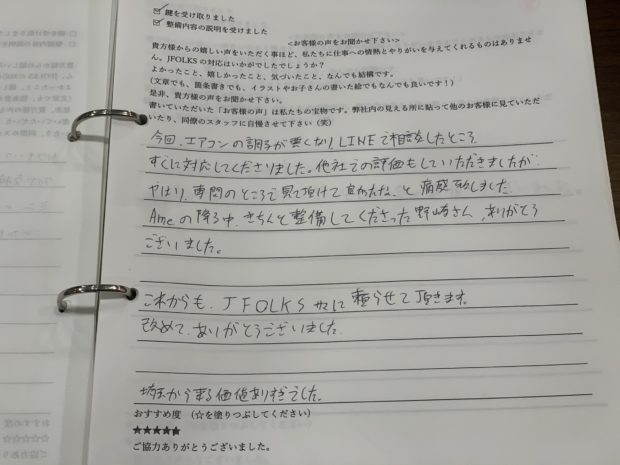 ☑ 鍵を受け取りました
☑ 整備内容の説明を受けました
<お客様の声をお聞かせ下さい>
貴方様からの嬉しい声をいただく事ほど、私たちに仕事への情熱とやりがいを与えてくれるものはありませ
ん。JFOLKSの対応はいかがでしたでしょうか？
よかったこと、嬉しかったこと、気づいたこと、なんでも結構です。
（文章でも、箇条書きでも、イラストやお子さんの書いた絵でもなんでも良いです！）
是非、貴方様の声をお聞かせ下さい。
書いていただいた「お客様の声」は私たちの宝物です。弊社内の見える所に貼って他のお客様に見ていただ
いたり、同僚のスタッフに自慢させて下さい（笑）
今回、エアコンの調子が悪くなり LINEで相談したところ
すぐに対応してくださりました。他社での評価もしていただきましたが
やはり、専門のところで見て頂けて良かったな、と痛感致しました。
Ameの降る中、きちんと整備してくださった野崎さん、ありがとう
ございました。
これからも、JFOLKSさんに頼らせて頂きます。
改めて、ありがとうございました。
から来る価値ありすぎでした。
おすすめ度 （☆を塗りつぶしてください）
★★★★★
ご協力ありがとうございました。